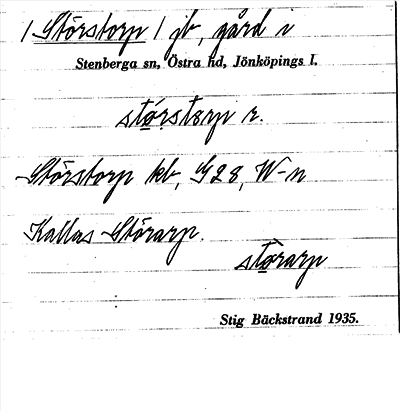 / Störstorp / jb, gård i
Stenberga sn, Östra hd, Jönköpings l.
stǿrstɐrp r.
Störstorp kb, G 28, W-n
Kallas Störarp.
stǿrarp
Stig Bäckstrand 1935.